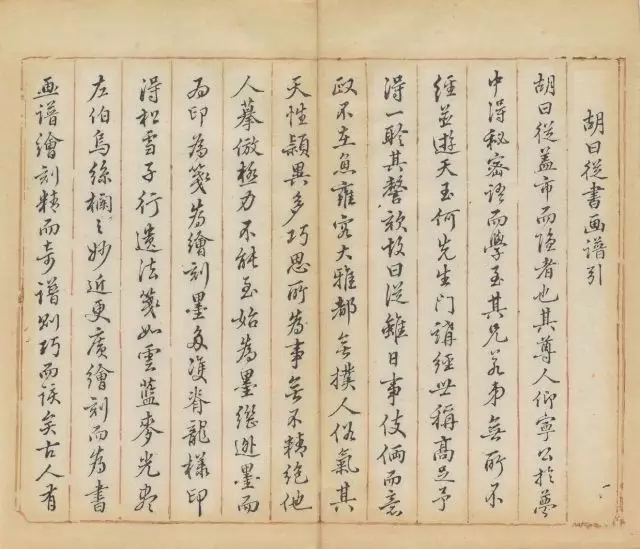 胡曰從書画譜引
胡曰從盖市而隐者也其尊人仰寧公於夢
中得秘密語而學至其兄若弟無所不
經並遊天玉何先生門講經世稱高足予
得一聆其謦欬故曰從雖日事伎倆而意
政不在魚雍容大雅都無撲人俗氣其
天性頴異多巧思所為事無不精绝他
人摹倣極力不能至始為墨繼逃墨而
為印為箋為繪刻墨多雙脊龍樣印
得松雪子行遺法箋如雲藍麥光盡
左伯烏絲欄之妙近更廣繪刻而為書
画譜繪刻精而奇譜則巧而該矣古人有
一